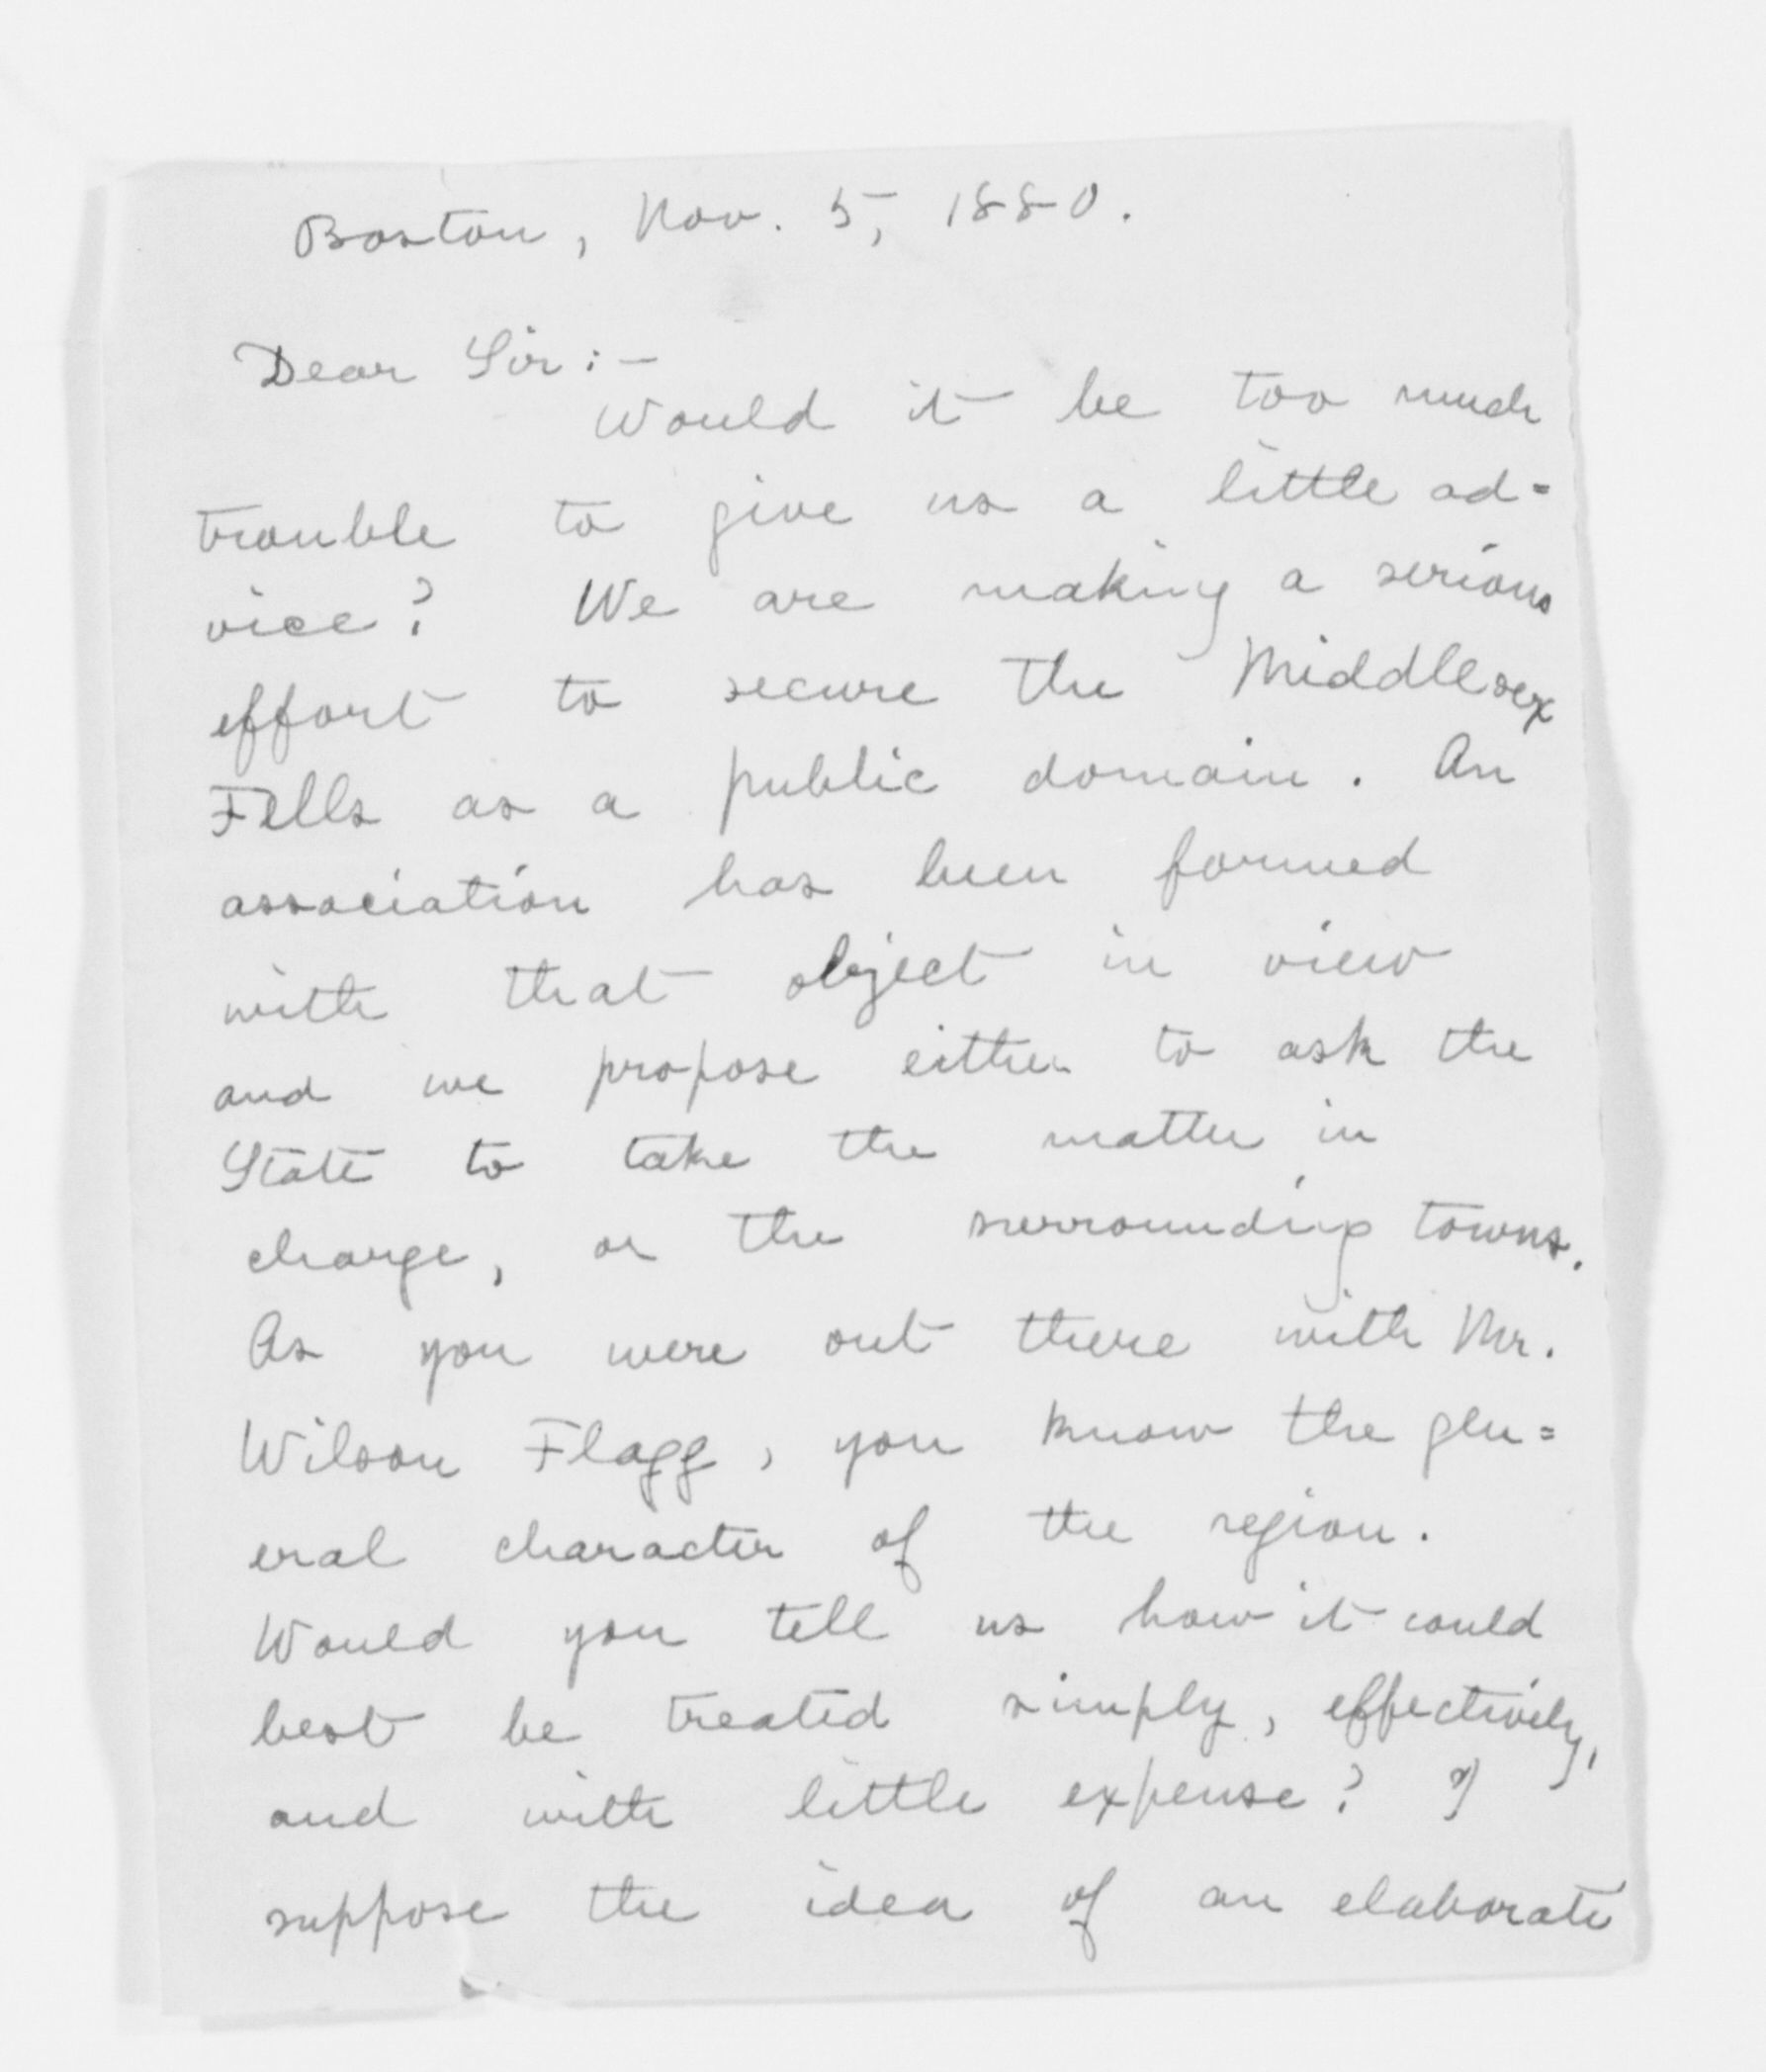 Boston, Nov. 5, 1880.
Dear Sir:-
Would it be too much
trouble to give us a little ad=
vice? We are making a serious
effort to secure the Middlesex
Fells as a public domain. An
association has been formed
with that object in view
and we propose either to ask the
State to take the matter in
charge, or the surrounding towns.
As you were out there with Mr.
Wilson Flagg, you know the gen=
eral character of the region.
Would you tell us how it could
best be treated simply, effectively,
and with little expense? I
suppose the idea of an elaborate